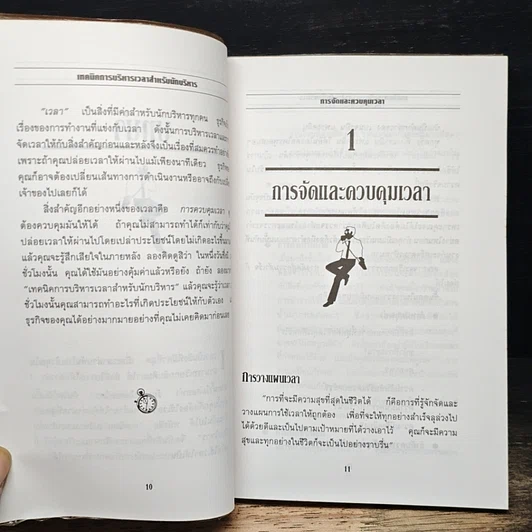 เทคนิคการบริหารเวลาสำหรับนักบริหาร
"เวลา" เป็นสิ่งที่มีค่าสำหรับนักบริหารทุกคน
เรื่องของการทำงานที่แข่งกับเวลา ดังนั้นการบริหารเวลาและ
จัดเวลาให้กับสิ่งสำคัญก่อนและหลังจึงเป็นเรื่องที่สมควร
เพราะถ้าคุณปล่อยเวลาให้ผ่านไปแม้เพียงนาทีเดียว
คุณก็อาจต้องเปลี่ยนเส้นทางการดำเนินงานหรืออาจถึงกับ
เจ้าของไปเลยก็ได้
สิ่งสำคัญอีกอย่างหนึ่งของเวลาคือ การควบคุมเวลา
ต้องควบคุมมันให้ได้ ถ้าคุณไม่สามารถทำได้ก็เท่ากับว่าคุณ
ปล่อยเวลาให้ผ่านไปโดยเปล่าประโยชน์โดยไม่เกิดอะไรขึ้น
แล้วคุณจะรู้สึกเสียใจในภายหลัง ลองคิดดูสิว่า ในหนึ่งวัน
ชั่วโมงนั้น คุณได้ใช้มันอย่างคุ้มค่าแล้วหรือยัง ถ้ายัง
"เทคนิคการบริหารเวลาสำหรับนักบริหาร" แล้วคุณจะรู้ว่า
ชั่วโมงนั้นคุณสามารถทำอะไรที่เกิดประโยชน์ให้กับตัวเอง
ธุรกิจของคุณได้อย่างมากมายอย่างที่คุณไม่เคยคิดมาก่อนเลย
10
การจัดและควบคุมเวลา
1
การจัดและควบคุมเวลา
การวางแผนเวลา
"การที่จะมีความสุขที่สุดในชีวิตได้ ก็คือการที่รู้จักจัดและ
วางแผนการใช้เวลาให้ถูกต้อง เพื่อที่จะให้ทุกอย่างสำเร็จลุล่วงไป
ได้ด้วยดีและเป็นไปตามเป้าหมายที่ได้วางเอาไว้ คุณก็จะมีความ
สุขและทุกอย่างในชีวิตก็จะเป็นไปอย่างราบรื่น"
11